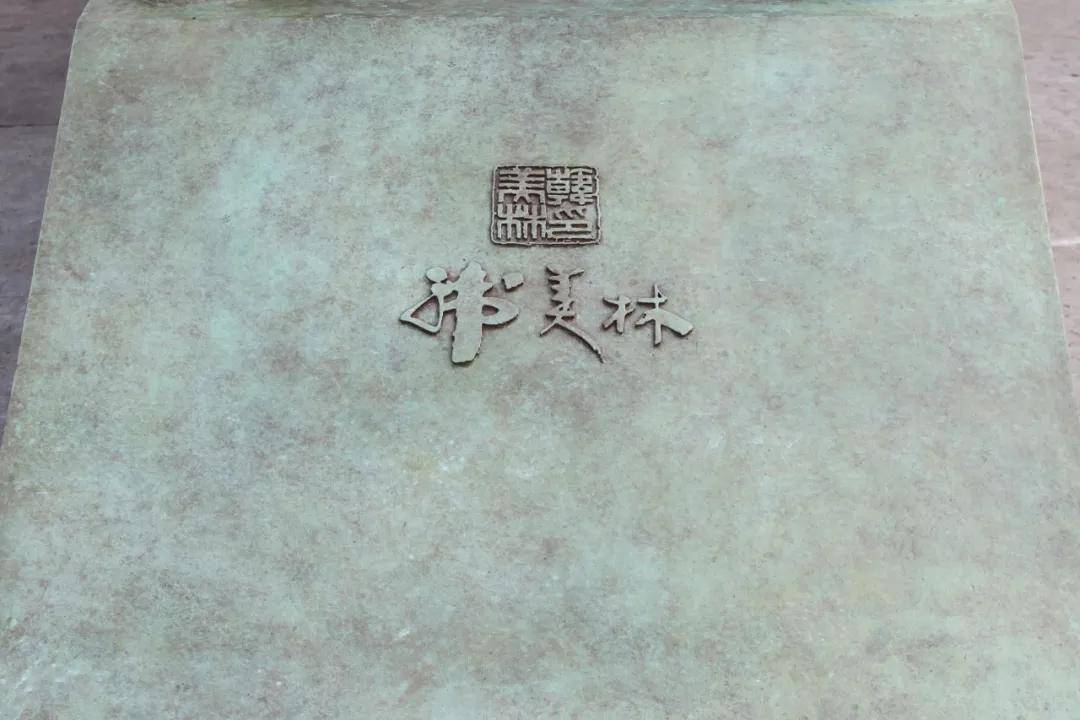 韓美林印
韩美林